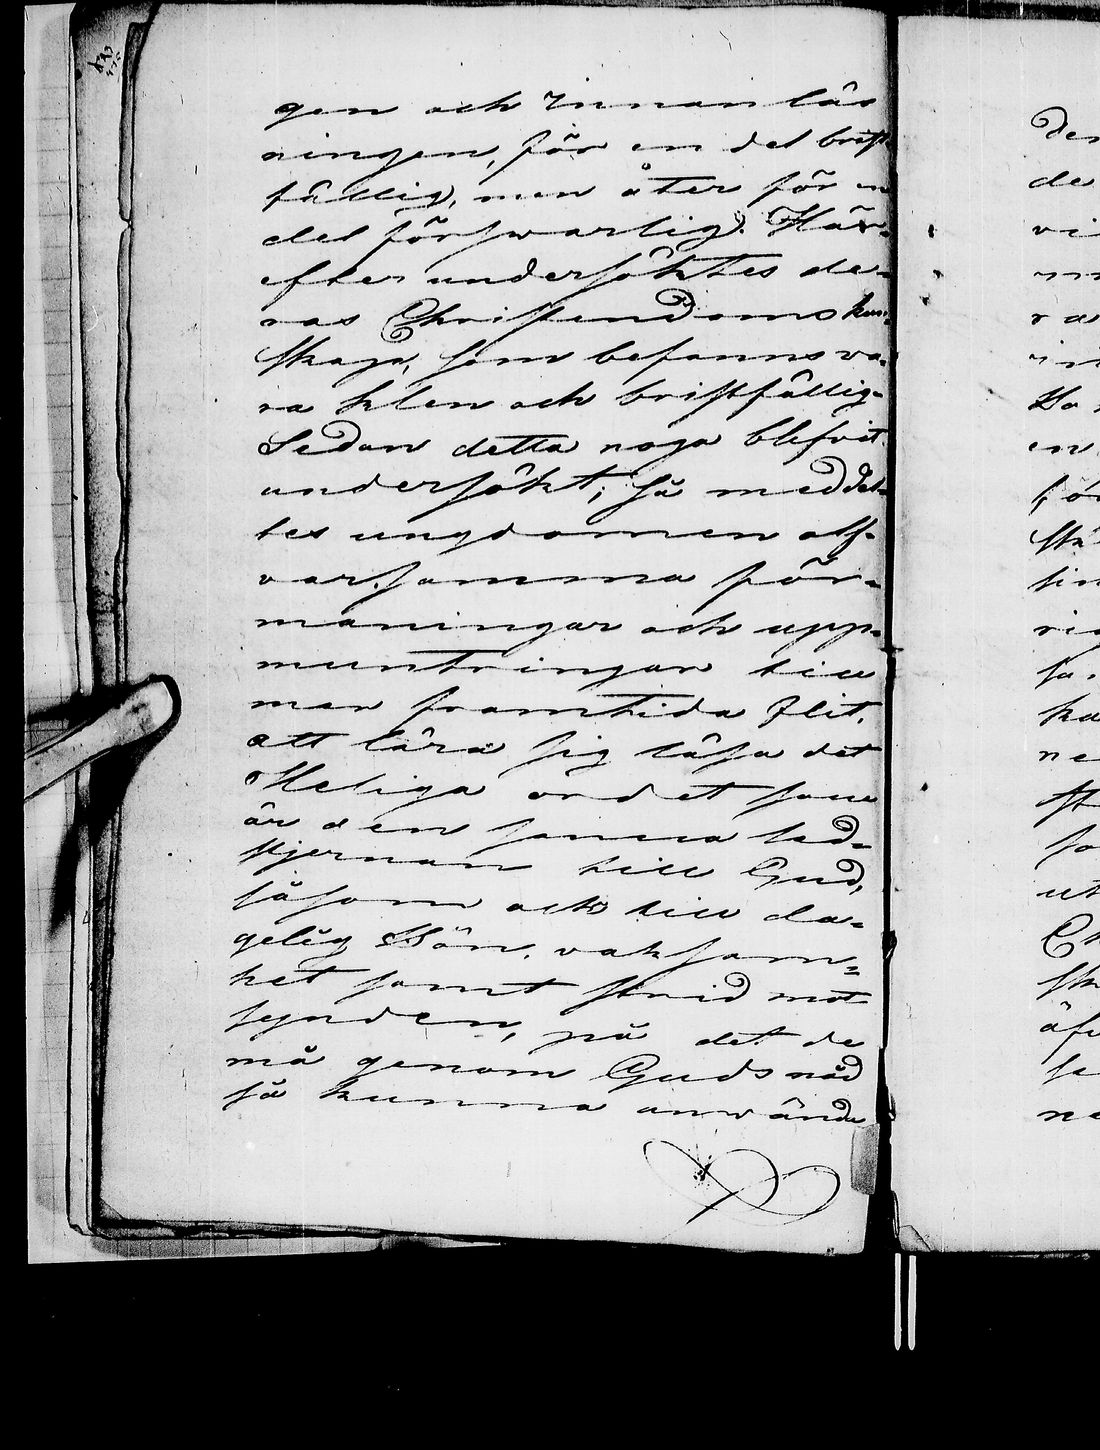 gen och Innan läs
ningen, för en del brist-
fällig, men åter för en
del förswarlig. Här-
efter undersöktes de-
ras Christendoms kun-
skap, som befanns va-
ra klen och bristfällig.
Sedan detta noga blifvit
undersökt, så meddel-
tes ungdomen all-
varsamma för-
maningar och upp-
muntringar till
mer framtida flit,
att lära sig läsa det
Heliga ordet som
är den sanna led-
stjernan till Gud,
såsom ock till da-
gelig Bön, vaksam-
het samt strid mot
synden, på det de
må genom Guds nåd
så kunna anwända
Den
de
vi
ra
en
för
ne
ut
Ch
ne